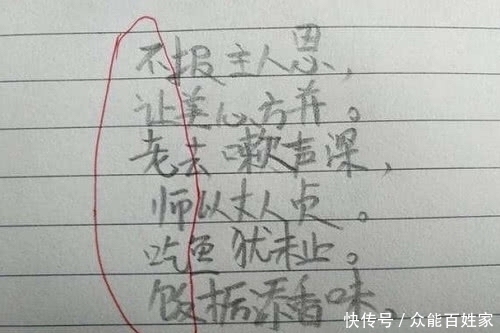 不报主人恩，
让美心方弃。
老去嗽声深，
师以丈人贞。
吃鱼犹未止。
饭后添香味
快传号/众能百姓家